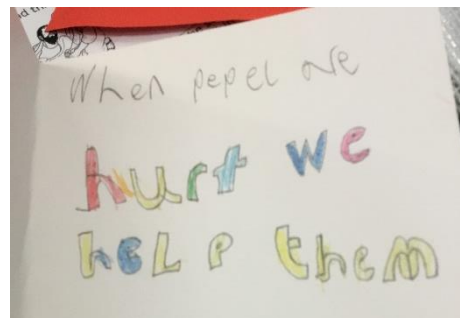 When pepel are
hurt we
heLp them